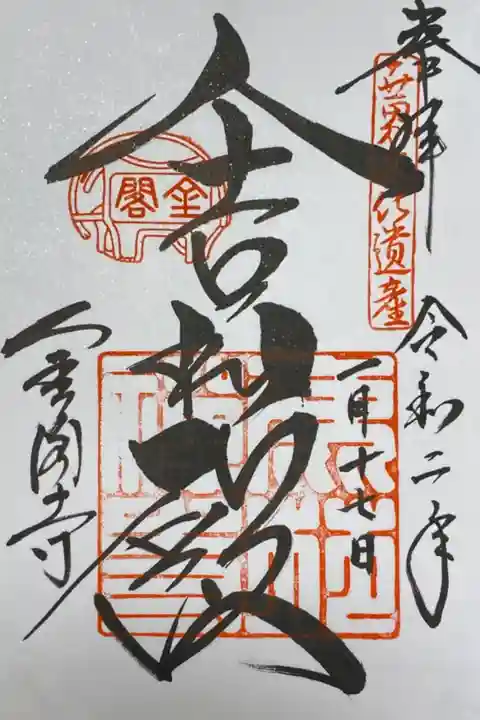 奉拝
世界文化遺産
令和二年
一月十七日
舎利殿
金閣
金閣寺